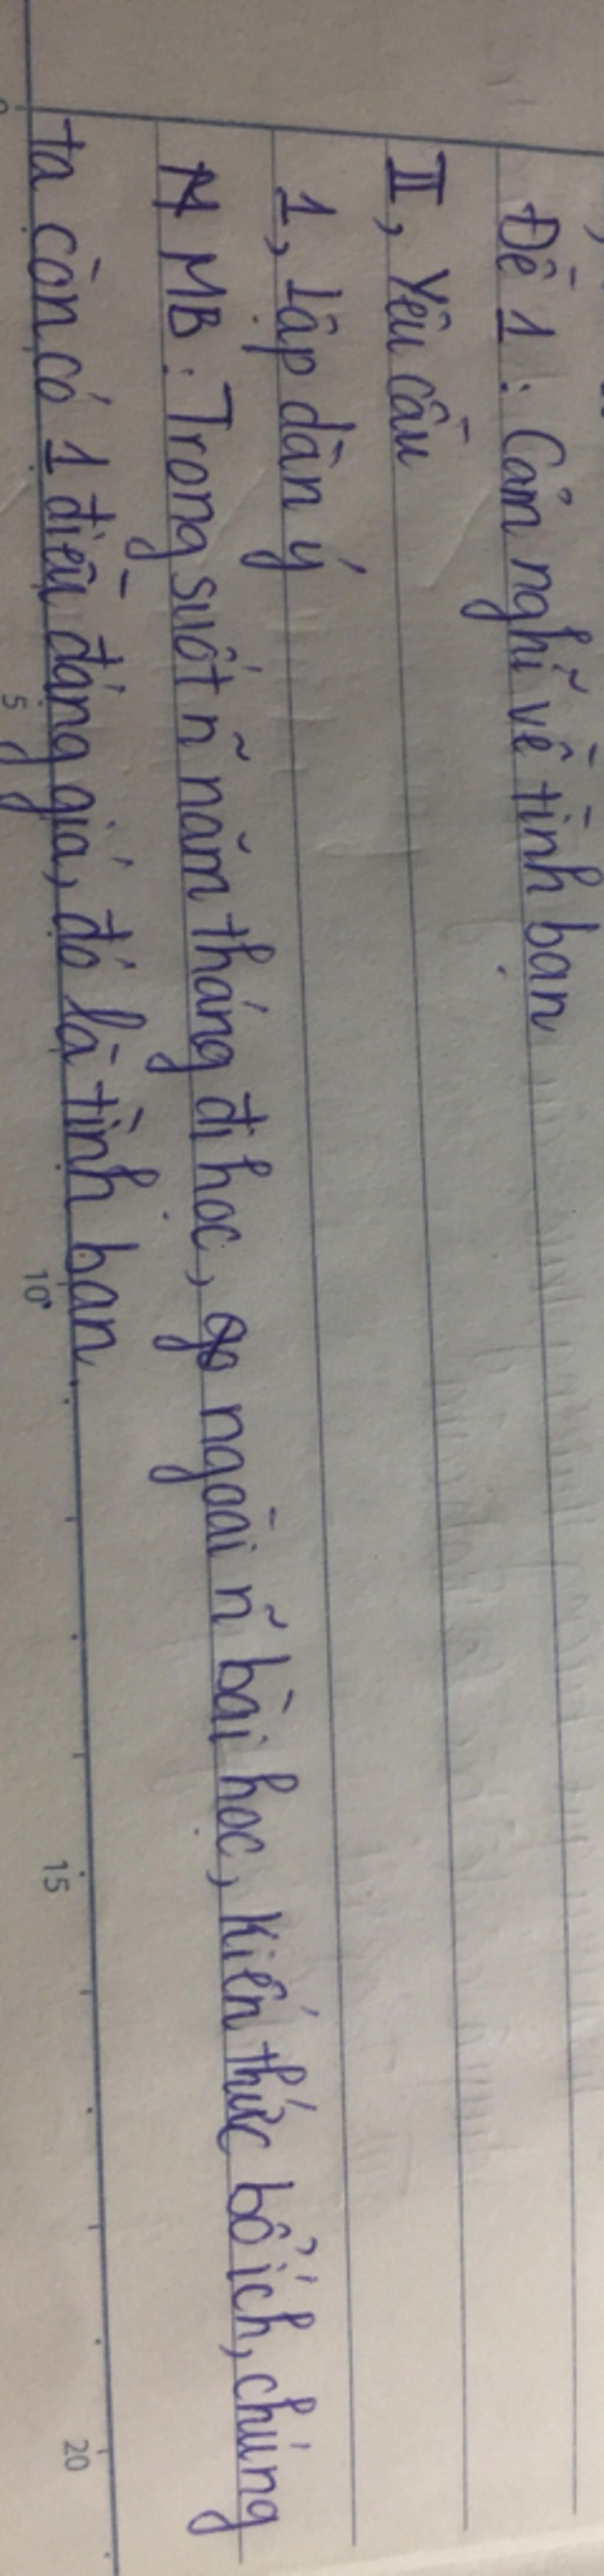 Đề 1: Cảm nghĩ về tình bạn
II, Yêu cầu
1, Lập dàn ý
MB: Trong suốt n~ năm tháng đi học, ngoài n~ bài học, kiến thức bổ ích, chúng
ta còn có 1 điều đáng giá, đó là tình bạn
5
10
15
20